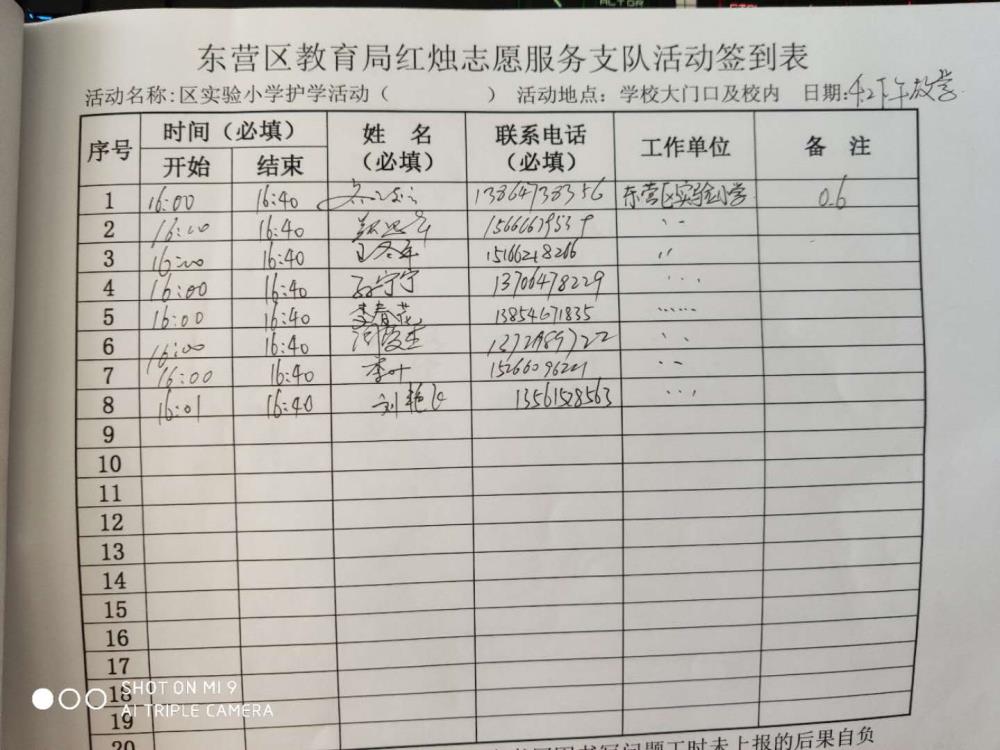 东营区教育局红烛志愿服务支队活动签到表
活动名称:区实验小学护学活动（ ） 活动地点：学校大门口及校内 日期:4.2下午放学
序号 时间（必填） 姓 名（必填） 联系电话（必填） 工作单位 备 注
开始 结束
1 16:00 16:40 13864738356 东营区实验小学 0.6
2 16:00 16:40
3 16:00 16:40 王冬年 15166218266 〃
4 16:00 16:40 孙宁宁 13706478229
5 16:00 16:40 李春花 13854671835
6 16:00 16:40
7 16:00 16:40 李叶
8 16:01 16:40 刘艳飞 13561528563
9
10
11
12
13
14
15
16
17
18
19
20
问题工时未上报的后果自负
SHOT ON MI 9
AI TRIPLE CAMERA